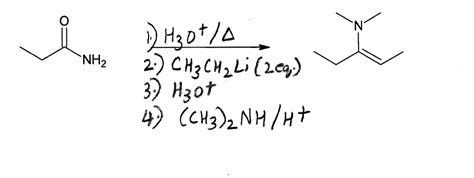 O
NH₂
1) H₃O⁺/Δ
2) CH₃CH₂Li (2eq.)
3) H₃O⁺
4) (CH₃)₂NH/H⁺
N